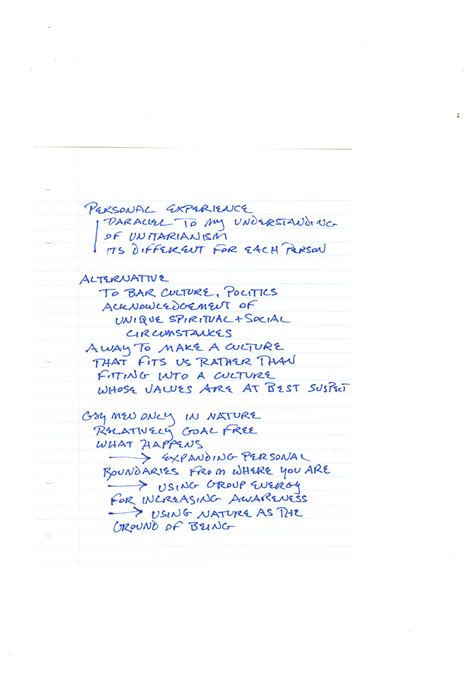 PERSONAL EXPERIENCE
PARALLEL TO MY UNDERSTANDING
OF UNITARIANISM
ITS DIFFERENT FOR EACH PERSON
ALTERNATIVE
TO BAR CULTURE, POLITICS
ACKNOWLEDGEMENT OF
UNIQUE SPIRITUAL + SOCIAL
CIRCUMSTANCES
A WAY TO MAKE A CULTURE
THAT FITS US RATHER THAN
FITTING INTO A CULTURE
WHOSE VALUES ARE AT BEST SUSPECT
GAY MEN ONLY IN NATURE
RELATIVELY GOAL FREE
WHAT HAPPENS
→ EXPANDING PERSONAL
BOUNDARIES FROM WHERE YOU ARE
→ USING GROUP ENERGY
FOR INCREASING AWARENESS
→ USING NATURE AS THE
GROUND OF BEING